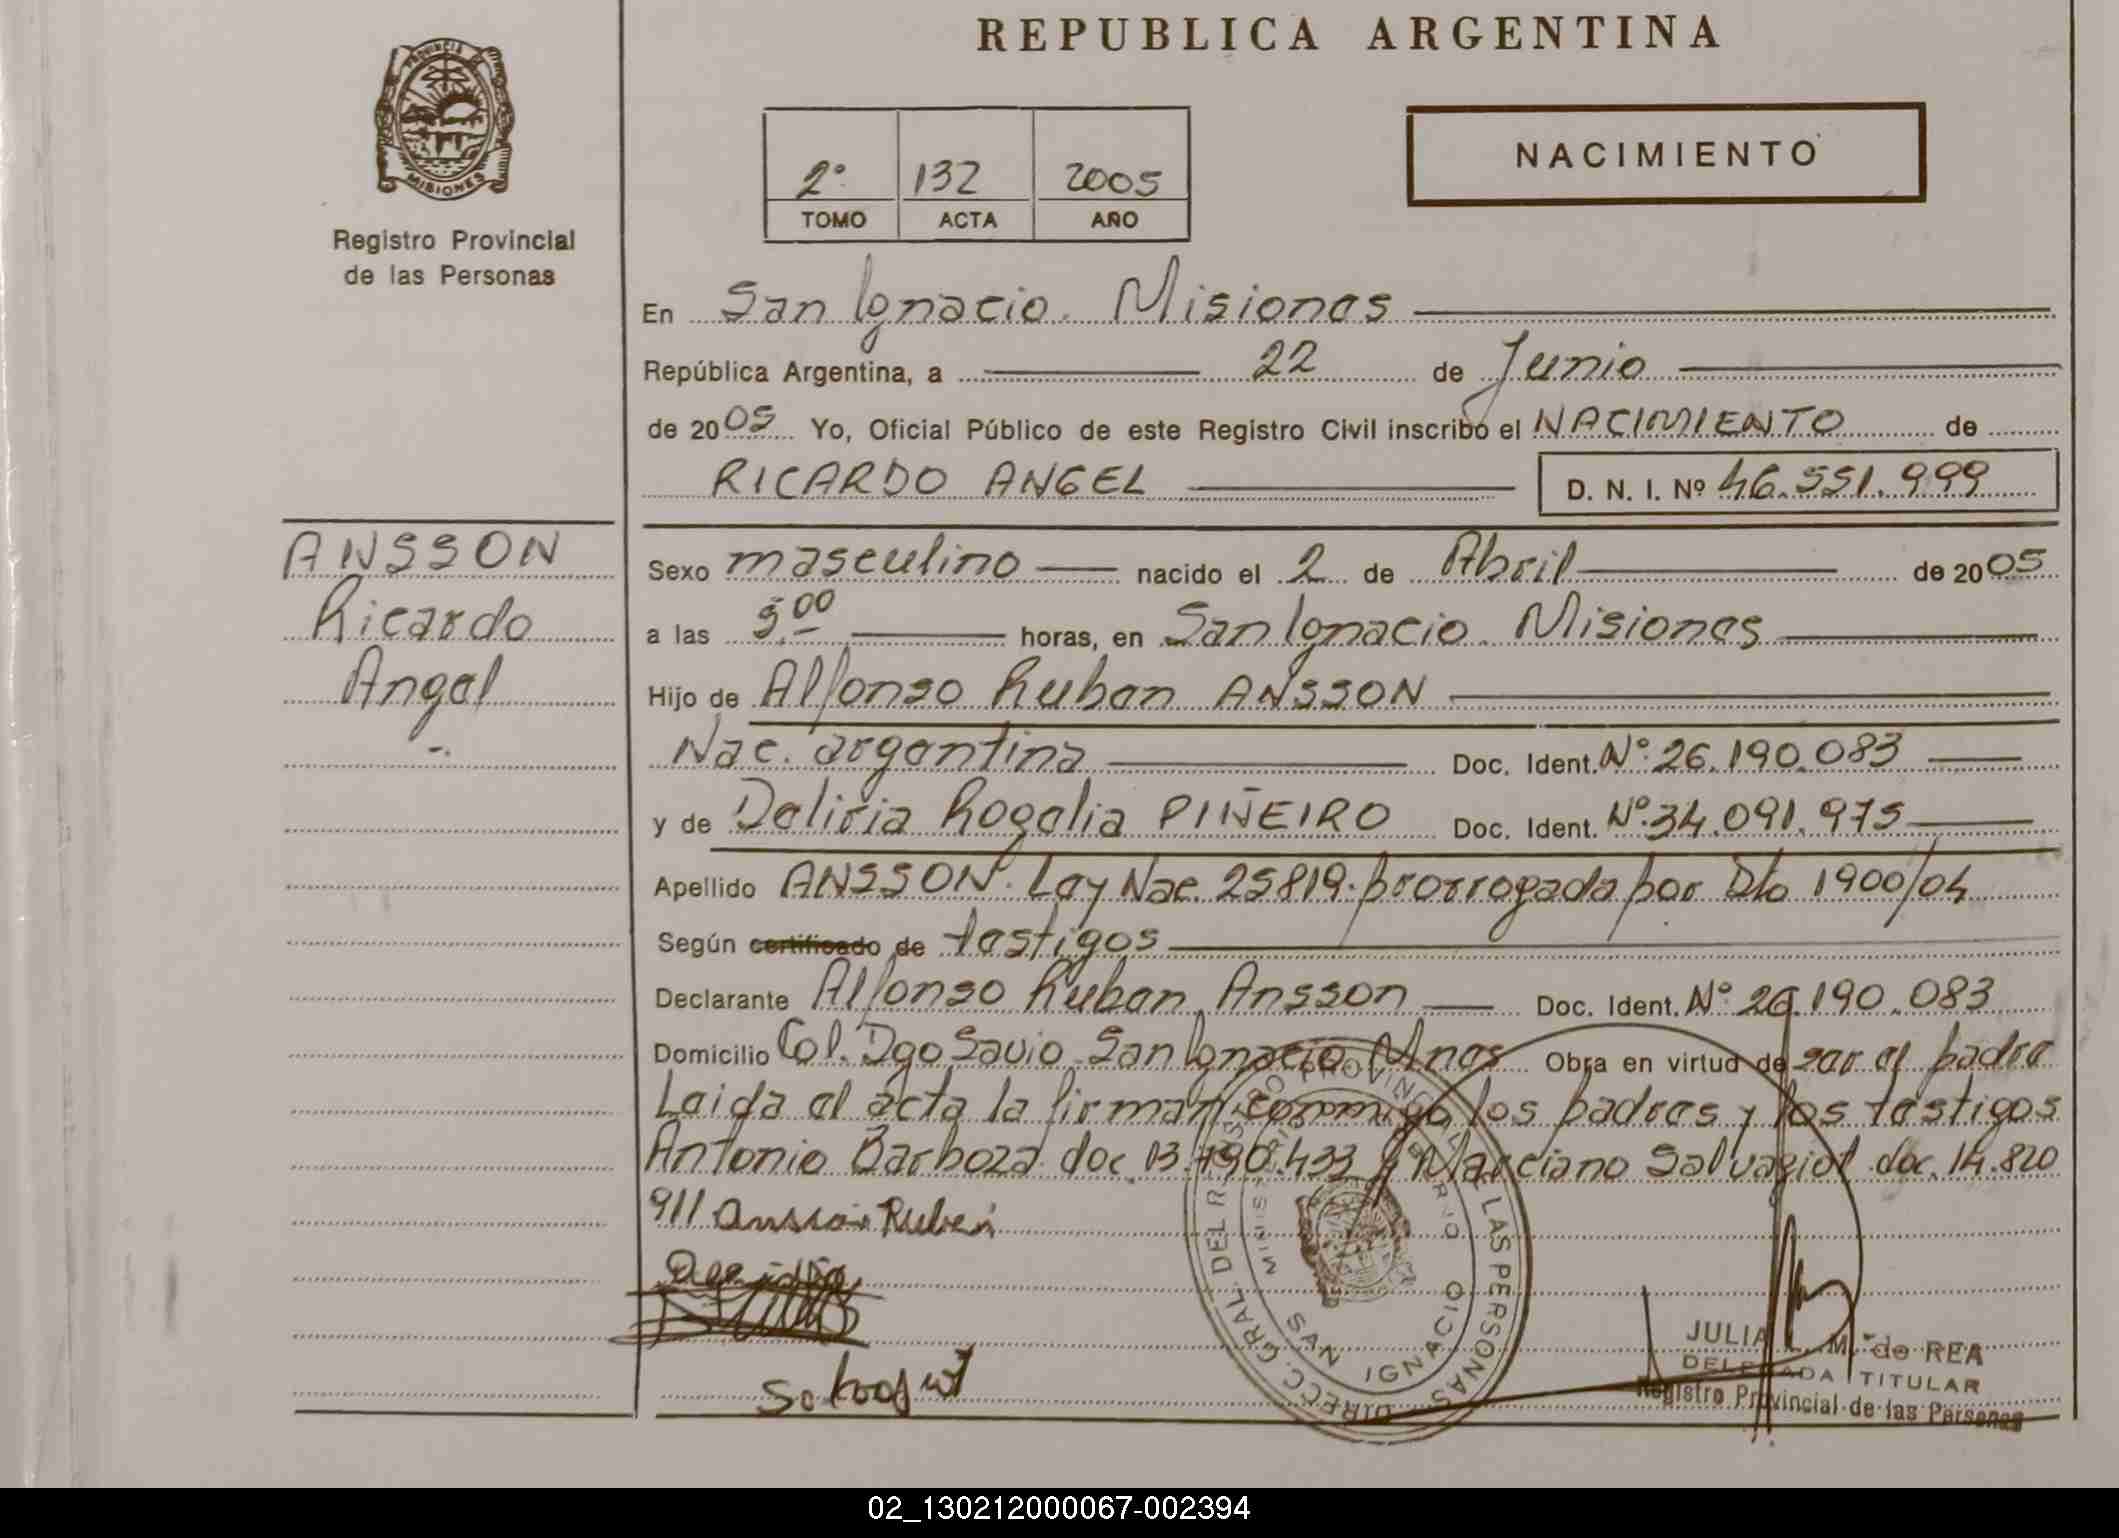 REPUBLICA ARGENTINA
PROVINCIA
MISIONES
Registro Provincial
de las Personas
2º 132 2005
TOMO ACTA AÑO
NACIMIENTO
En San Ignacio. Misiones
República Argentina, a 22 de Junio
de 2005 Yo, Oficial Público de este Registro Civil inscribo el NACIMIENTO de
RICARDO ANGEL D. N. I. Nº 46.551.999
ANSSON
Ricardo
Angel
Sexo masculino nacido el 2 de Abril de 2005
a las 5.00 horas, en San Ignacio. Misiones
Hijo de Alfonso Ruben ANSSON
Nac. argentina Doc. Ident. Nº: 26.190.083
y de Deliria Rogelia PIÑEIRO Doc. Ident. Nº: 34.091.975
Apellido ANSSON. Ley Nac. 25819. prorrogada por Dto 1900/04
Según certificado de testigos
Declarante Alfonso Ruben Ansson Doc. Ident. Nº 26.190.083
Domicilio Col. Dgo Savio. San Ignacio Mnes Obra en virtud de ser el padre
Leida el acta la firman conmigo los padres y los testigos
Antonio Barboza doc. 13.790.433 y Marciano doc. 14.820
911 Ansson Ruben
DIRECC. GRAL. DEL REGISTRO PROVINCIAL DE LAS PERSONAS
MINISTERIO DE GOBIERNO
SAN IGNACIO
JULIA L. M. de REA
DELEGADA TITULAR
Registro Provincial de las Personas
02_130212000067-002394